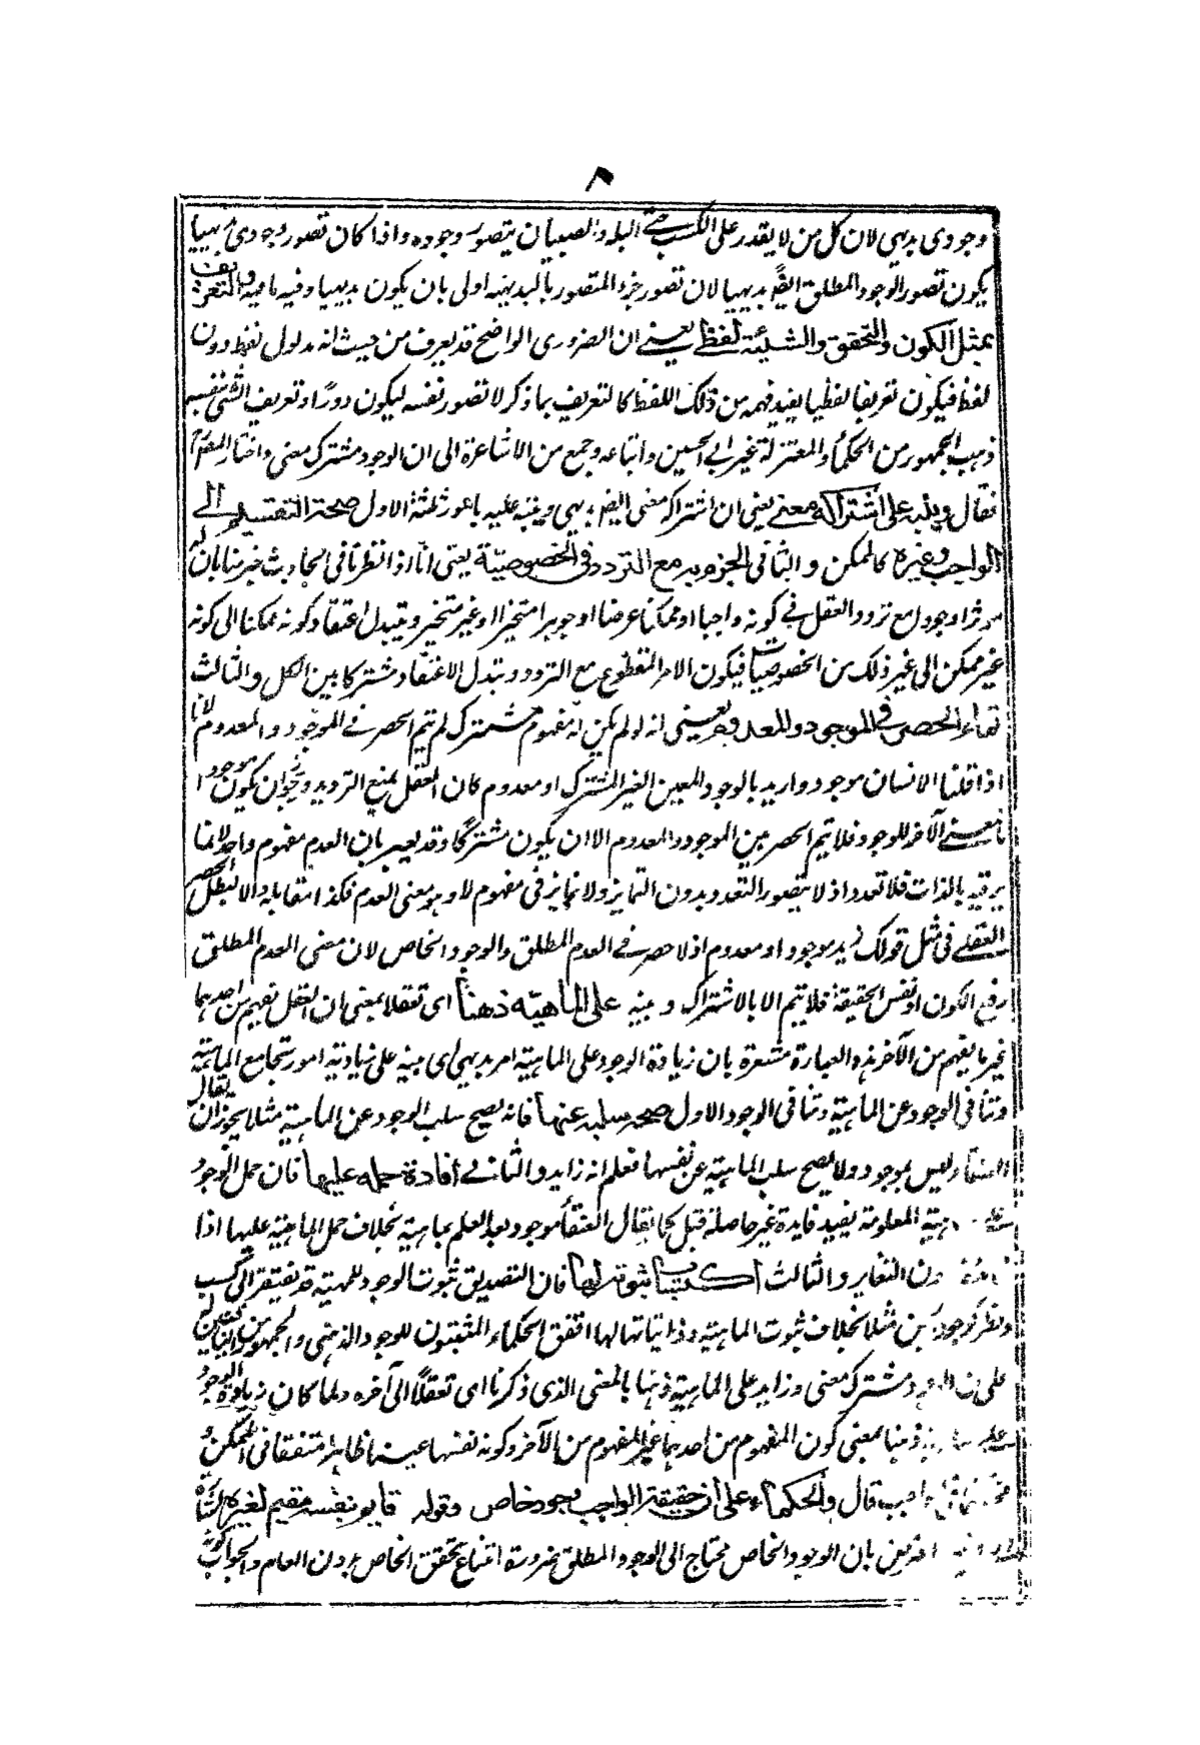 وجودى بديهى لان كل من لا يقدر على الكسب حتے البله والصبيان يتصور وجوده واذا كان تصور وجودى بديهيا
يكون تصور الوجود المطلق ايضًا بديهيا لان تصور جزء المتصور بالبديهة اولى بان يكون بديهيا وفيه ما فيه والتعريف
بمثل الكون والتحقق والشيئة لفظے يعنے ان الضرورى الواضح قد يعرف من حيث انه مدلول لفظ دون
لفظ فيكون تعريفا لفظيا يفيد فهمه من ذلك اللفظ كالتعريف بما ذكر لا تصور نفسه ليكون دورًا وتعريف الشئ بنفسه
ذهب الجمهور من الحكماء والمعتزلة غير ابى الحسين واتباعه وجمع من الاشاعرة الى ان الوجود مشترك معنى واختاره المصـ
فقال وينبه على اشتراكه معنے يعنى ان اشتراكه معنى ايضًا بديهى وينبه عليه بامور ثلثة الاول صحة التقسيم الے
الواجب وغيره كالممكن والثانى الجزم به مع التردد فى الخصوصيّة يعنى انّا اذا نظرنا فى الحادث جزمنا بان له
موثرا موجودا مع تردد العقل فے كونه واجبا او ممكنا عرضا او جوهرا متحيزا او غير متحيز ويتبدل اعتقاد كونه ممكنا الى كونه
غير ممكن الى غير ذلك من الخصوصيات فيكون الامر المقطوع مع التردد وتبدل الاعتقاد مشتركا بين الكل والثالث
تمام الحصر فى الموجود والمعدوم يعنى انه لو لم يكن له مفهوم مشترك لم يتم الحصر فے الموجود والمعدوم لانا
اذا قلنا الانسان موجود واريد بالوجود المعين الغير المشترك او معدوم كان العقل يمنع الترديد ويجوز ان يكون موجودا
بالمعنے الآخر للوجود فلا يتم الحصر بين الموجود والمعدوم الا ان يكون مشتركًا وقد يعبر بان العدم مفهوم واحد لا تمايز
فيه بالذات فلا تعدد اذ لا يتصور التعدد بدون التمايز ولا تمايز فى مفهوم لا وهو معنى العدم فكذا مقابله والا لبطل الحصر
العقلے فى مثل قولك زيد موجود او معدوم اذ لا حصر فے العدم المطلق والوجود الخاص لان معنى العدم المطلق
رفع الكون او نفس الحقيقة فلا يتم الا بالاشتراك وينبه على الماهيّة ذهناً اى تعقلا بمعنى ان العقل يفهم من احدهما
غير ما يفهم من الآخر هذه العبارة مشعرة بان زيادة الوجود على الماهية امر بديهى اى ينبه على زيادته امور تجامع الماهية
وتنافى الوجود عن الماهية وتنافى الوجود الاول صحة سلبه عنها فانه يصح سلب الوجود عن الماهية مثلا يجوز ان يقال
العنقاء ليس بموجود ولا يصح سلب الماهية عن نفسها فعلم انه زايد والثانے افادة حمله عليها فان حمل الوجود
على الماهية المعلومة يفيد فايدة غير حاصلة قبل كما يقال العنقاء موجود بعد العلم بماهيته بخلاف حمل الماهية عليها اذا
دون التغاير والثالث اكتساب ثبوته لها فان التصديق بثبوت الوجود للمهية قد يفتقر الى كسب
ونظر كوجود جن مثلا بخلاف ثبوت الماهية وذاتياتها لها اتفق الحكماء المثبتون للوجود الذهنى والجمهور من النافين له
على ان الوجود مشترك معنى وزايد على الماهية ذهنا بالمعنى الذى ذكرنا اى تعقلاً الى آخره ولما كان زيادة الوجود
على الماهية ذهنا بمعنى كون المفهوم من احدهما غير المفهوم من الآخر وكونه نفسها عينا ظاهرا متفقا فى الممكن و
واجب قال والحكماء على ان حقيقة الواجب وجود خاص وقوله قايم بنفسه مقيم لغيره اشارة
بان الوجود الخاص محتاج الى الوجود المطلق ضرورة امتناع تحقق الخاص بدون العام والجواب كون